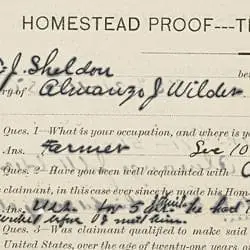 HOMESTEAD PROOF---T
J. Sheldon
be
ry of Almanzo J Wilder
Ques. 1—What is your occupation, and where is yo
Ans. Farmer Sec 10
Ques. 2—Have you been well acquainted with
claimant, in this case ever since he made his Hom
Ans. for 5 he had
I met him.
Ques. 3—Was claimant qualified to make said
United States, over the age of twenty-one years o